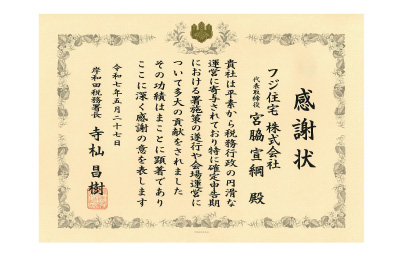 感謝状
フジ住宅 株式会社
代表取締役 宮脇 宣綱 殿
貴社は平素から税務行政の円滑な
運営に寄与されており特に確定申告期
における署施策の遂行や会場運営に
ついて多大の貢献をされました
その功績はまことに顕著であり
ここに深く感謝の意を表します
令和七年五月二十七日
岸和田税務署長 寺杣 昌樹